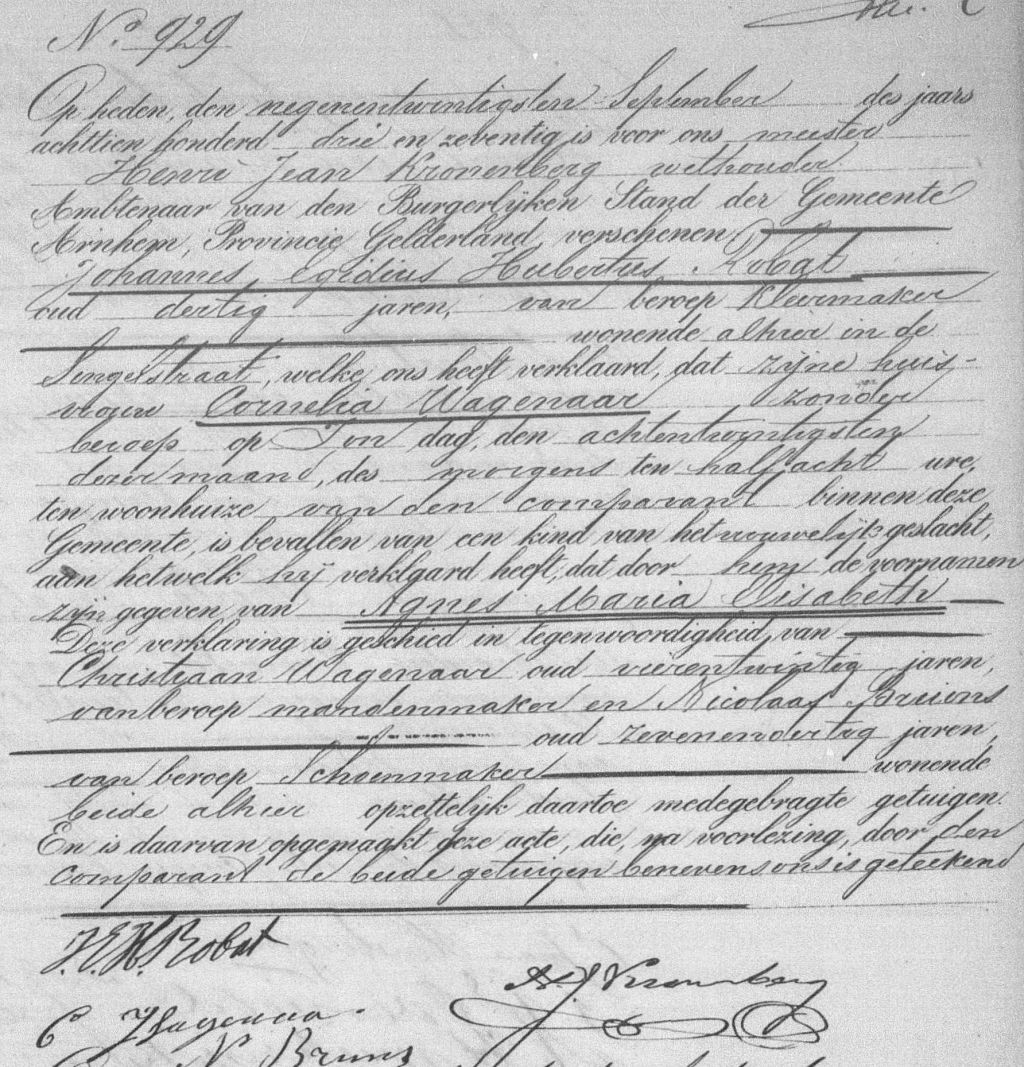 No. 929
Op heden, den negenentwintigsten September des jaars
achttien honderd drie en zeventig is voor ons meester
Henri Jean Kronenberg wethouder
Ambtenaar van den Burgerlijken Stand der Gemeente
Arnhem, Provincie Gelderland, verschenen:
Johannes Egidius Hubertus Robat
oud dertig jaren, van beroep Kleermaker
wonende alhier in de
Singelstraat, welke ons heeft verklaard, dat zijne huis-
vrouw Cornelia Wagenaar zonder
beroep op Zon dag, den achtentwintigsten
dezer maand, des morgens ten half acht ure,
ten woonhuize van den comparant binnen deze
Gemeente, is bevallen van een kind van het vrouwelijk geslacht,
aan hetwelk hij verklaard heeft, dat door hem de voornamen
zijn gegeven van Agnes Maria Elisabeth
Deze verklaring is geschied in tegenwoordigheid van
Christiaan Wagenaar oud vierentwintig jaren,
van beroep mandenmaker en Nicolaas Bruons
oud zevenendertig jaren,
van beroep Schoenmaker wonende
beide alhier opzettelijk daartoe medegebragte getuigen.
En is daarvan opgemaakt deze acte, die, na voorlezing, door den
Comparant de beide getuigen benevens ons is geteekend
J. E. H. Robat
H J Kronenberg
C Wagenaar
N Bruns